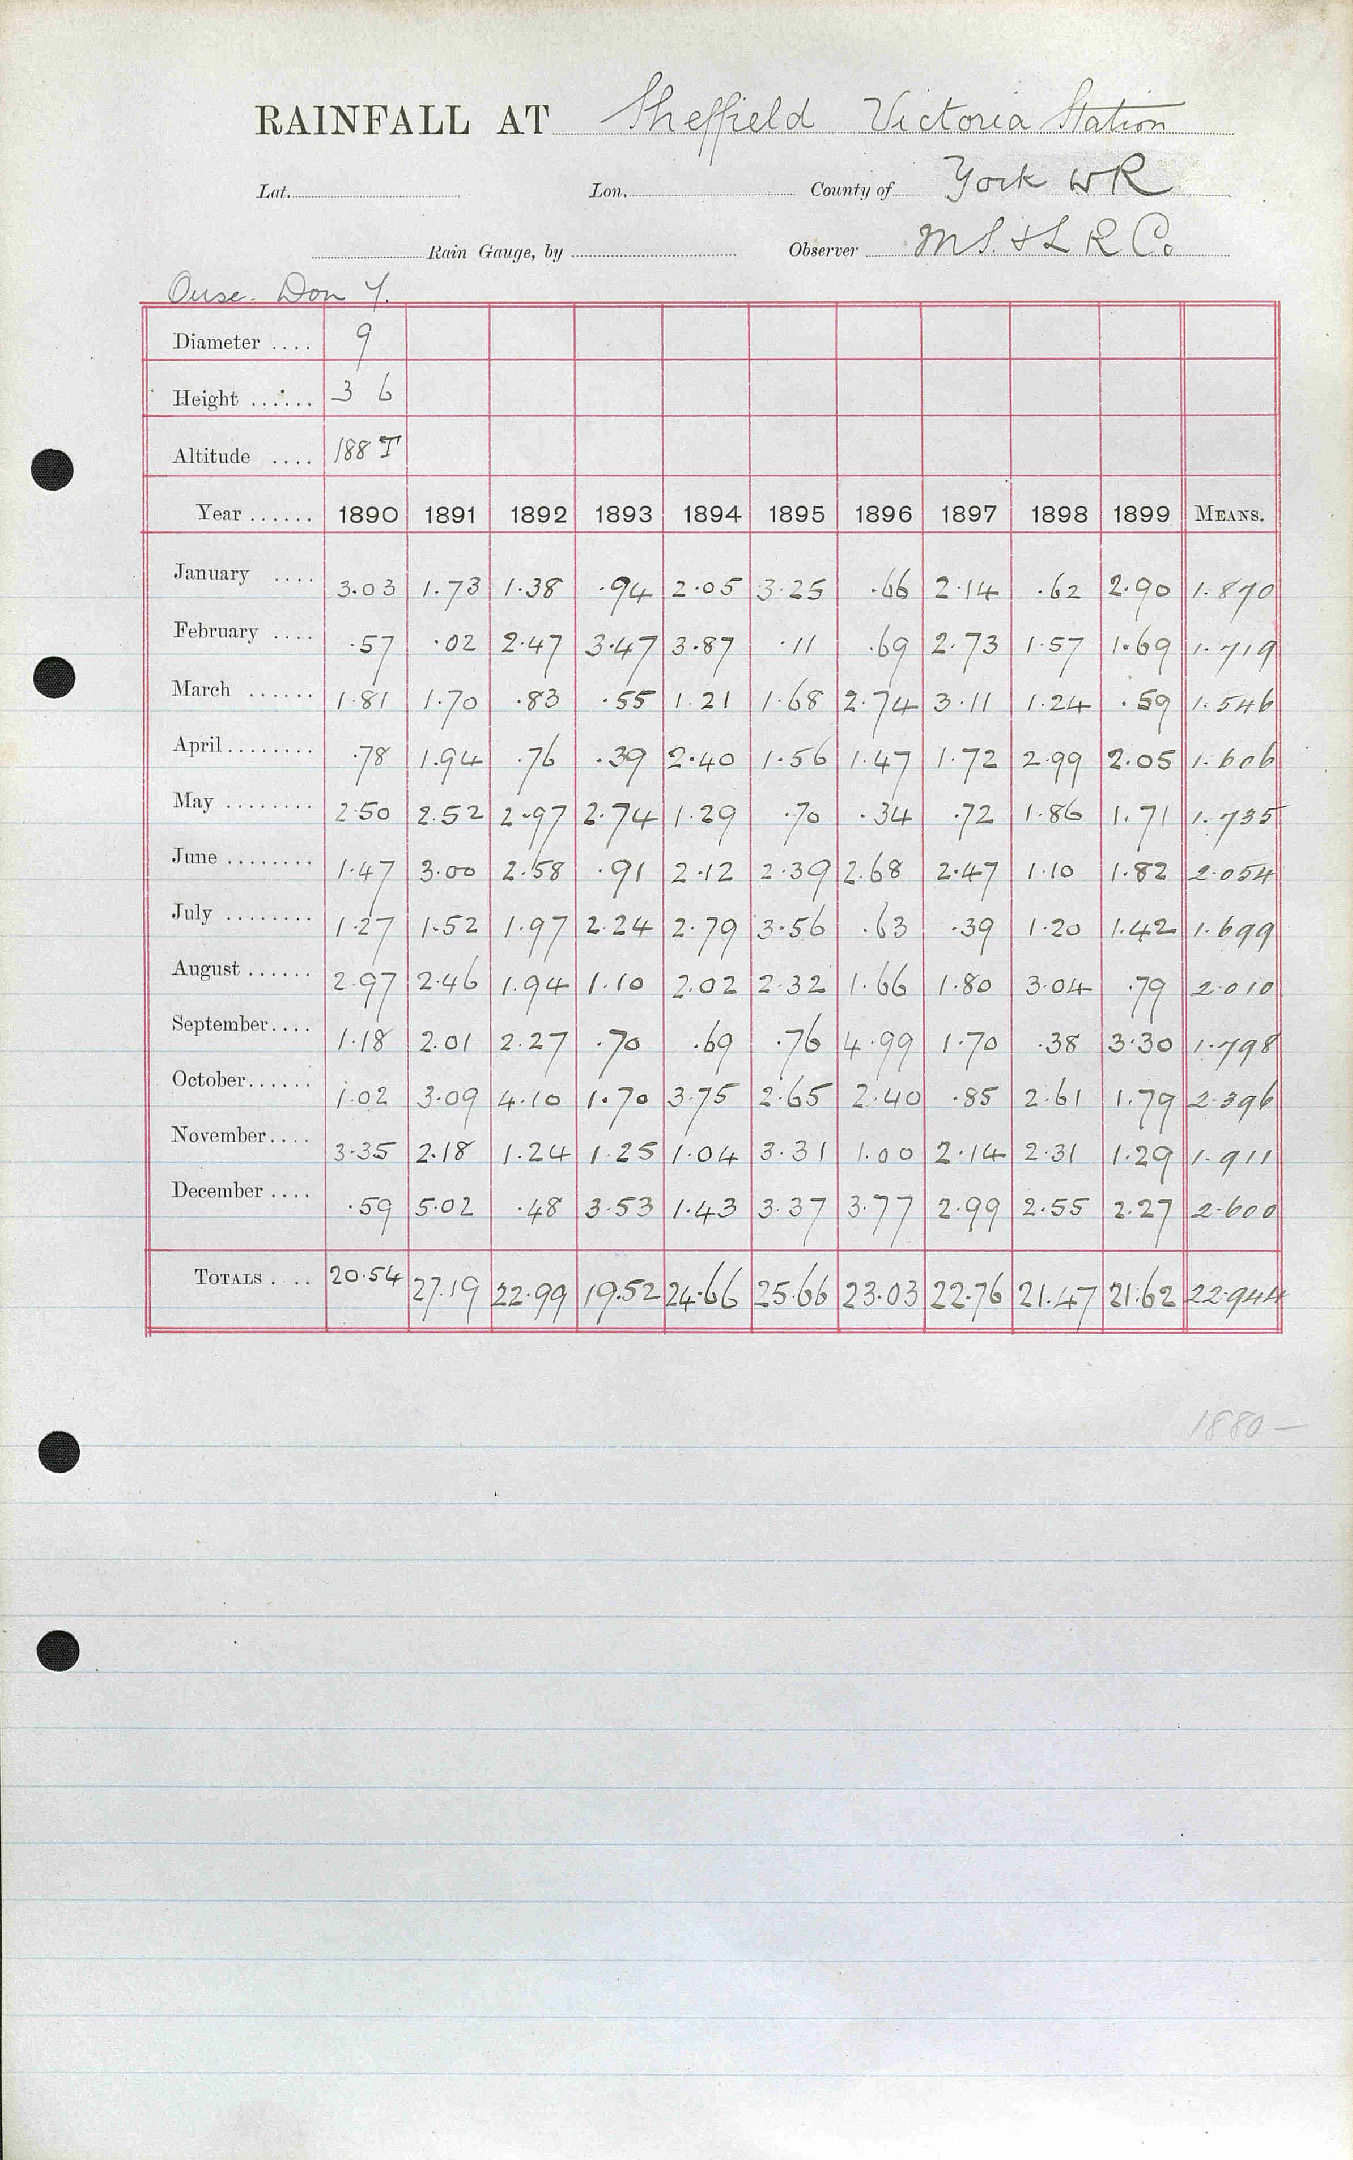 RAINFALL AT Sheffield Victoria Station
Lat. Lon. County of York WR
Rain Gauge, by Observer M S. & L R Co
Ouse. Don Y.
Diameter .... 9
Height ...... 3 6
Altitude .... 188 T
Year ...... 1890 1891 1892 1893 1894 1895 1896 1897 1898 1899 MEANS.
January .... 3.03 1.73 1.38 .94 2.05 3.25 .66 2.14 .62 2.90 1.870
February .... .57 .02 2.47 3.47 3.87 .11 .69 2.73 1.57 1.69 1.719
March ...... 1.81 1.70 .83 .55 1.21 1.68 2.74 3.11 1.24 .59 1.546
April ........ .78 1.94 .76 .39 2.40 1.56 1.47 1.72 2.99 2.05 1.606
May ........ 2.50 2.52 2.97 2.74 1.29 .70 .34 .72 1.86 1.71 1.735
June ........ 1.47 3.00 2.58 .91 2.12 2.39 2.68 2.47 1.10 1.82 2.054
July ........ 1.27 1.52 1.97 2.24 2.79 3.56 .63 .39 1.20 1.42 1.699
August ...... 2.97 2.46 1.94 1.10 2.02 2.32 1.66 1.80 3.04 .79 2.010
September .... 1.18 2.01 2.27 .70 .69 .76 4.99 1.70 .38 3.30 1.798
October ...... 1.02 3.09 4.10 1.70 3.75 2.65 2.40 .85 2.61 1.79 2.396
November .... 3.35 2.18 1.24 1.25 1.04 3.31 1.00 2.14 2.31 1.29 1.911
December .... .59 5.02 .48 3.53 1.43 3.37 3.77 2.99 2.55 2.27 2.600
TOTALS .... 20.54 27.19 22.99 19.52 24.66 25.66 23.03 22.76 21.47 21.62 22.944
1880 -